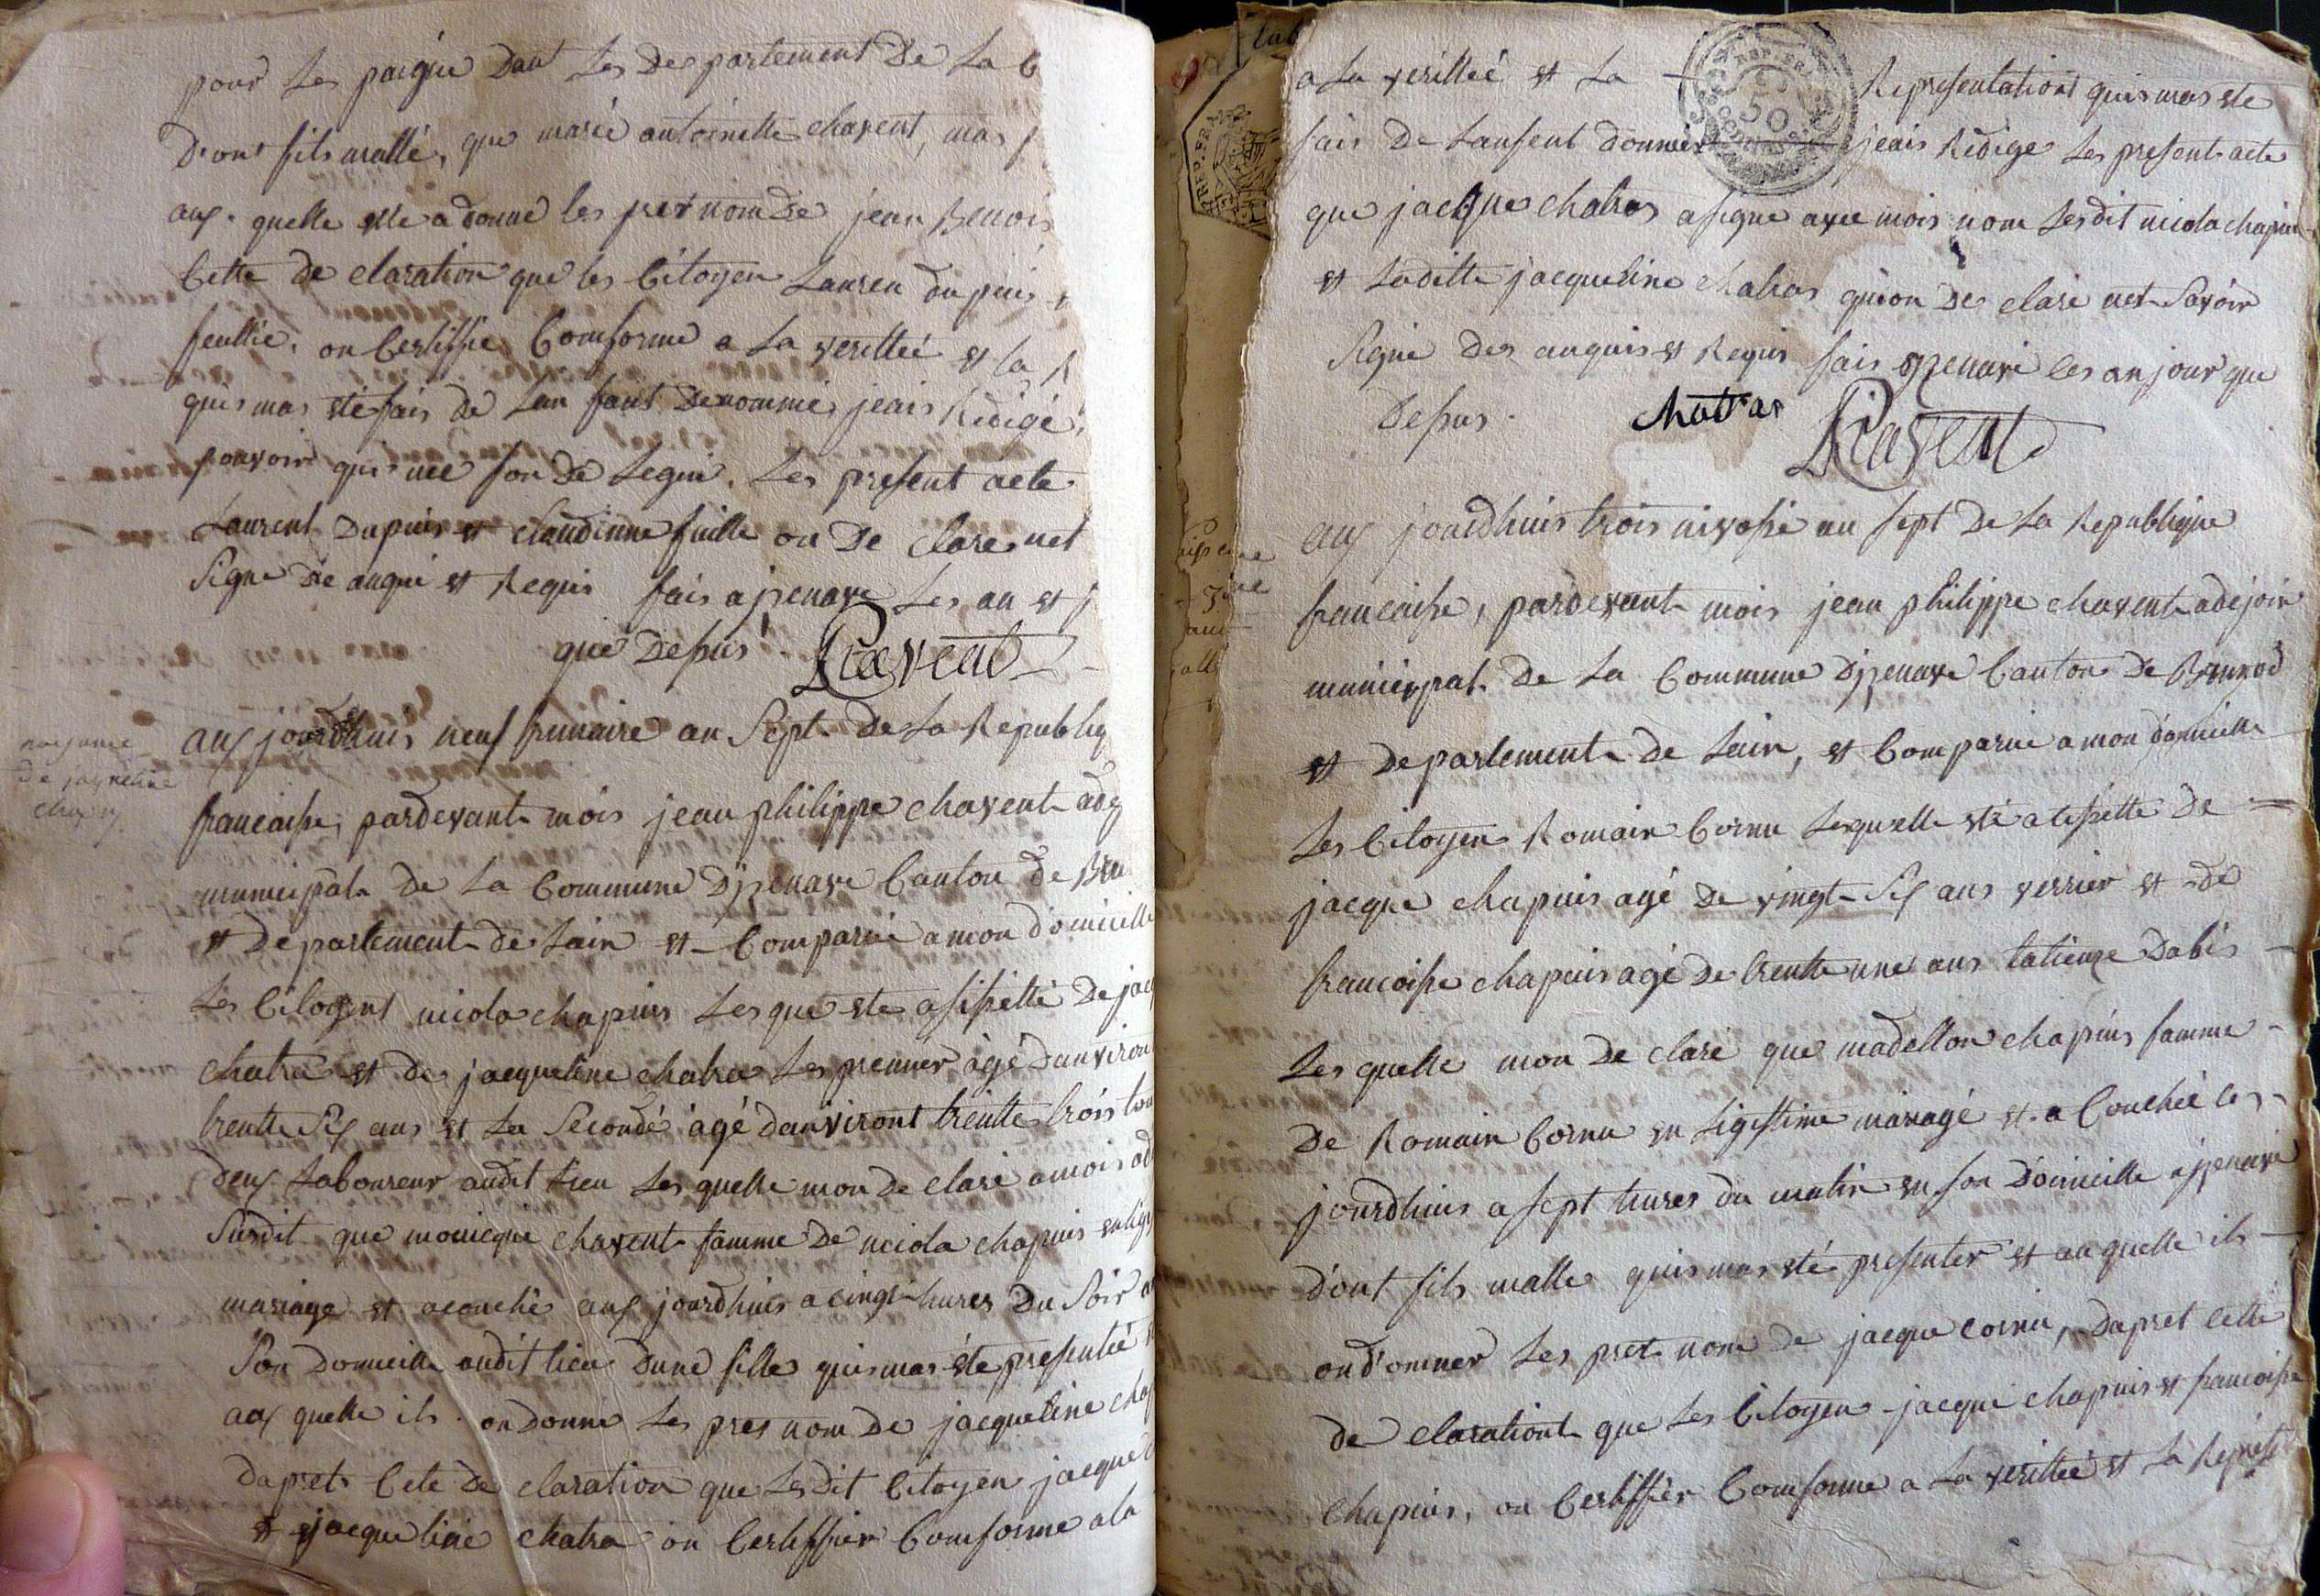 pour Les paigue Dant Les Departement De La C
D'ont fils malle, que marie antoinette chavent, mas
aux quelle elle a donné les pret nom De jean Benois
Cette De claration que les Citoyen Lauren dupuis
feullie, on Certiffie Comforme a La verittéé et la R
quis mas été fais De Lan fant Denommé, jeais Rédigé,
pouvoir qui mee son De Legui, Les present acte
Laurent Dupuis et claudinne fuille on De clare net
Signe De anqui et Requis fais apenave Les an et j
que Desus. Chavent
naisance
De jaqueline
chapuis
aux jourdhuis neuf frimaire an Sept De La Republiq
francaise, pardevant mois jean philippe chavent adj
municipal De La Commune Djzenave Canton de Bre
et Departement de Lain et Comparue a mon domicille
Les Citoyent nicola chapuis Les que este asistté De jac
chatra et De jacqueline chatra Les premier àgé Danviron
trentte Six ans et La Secondé àgé danviront trentte trois tou
Deux Laboureur audit Lieu Les quelle mon De claré a mois ad
Susdit que monicque chavent famme De nicola chapuis en lig
mariage et acouché aux jourdhuis a cinqt hures Du Soir a
Son Domicille audit lieu Dune fille quis mas été presentéé
aux quelle ils on donné Les pres nom De jacqueline chap
Dapret Cete De claration que Lesdit Citoyen jacque
et jacqueline chatra on Certiffier Comforme a la
a La verittéé et La Representationt quis mas ete
fais De Lanfent donnée jeais Rédige Les present acte
que jacque chatras a signe avec mois nom Lesdit nicola chapuis
et Laditte jacqueline chatras quion De claré net Savoir
Signé Des anquis et Requis fais Izenave les an jour que
Desus. Chatras Chavent
aux jourdhuis trois nivosse an sept De La Republique
francaisse, pardevant mois jean philippe chavent adejoin
municipal De La Commune Djzenave Canton De Brenod
et Departement De Lain, et Comparue a mon domicille
Les Citoyen Romain Cornu Lesquelle été atesistte De
jacque chapuis agé De vingt Six ans verrier et De
francoise chapuis agé De trentte une ans Dabis
Les quelle mon De claré que madellon chapuis famme
De Romain Cornu en Ligittime mariagé et a Couchéé ces
jourdhuis a sept hures du matin en son Domicille a jzenave
d'ont fils malle quis mas été presenter et au quelle ils
on d'onner Les pret nom De jacque cornu, Dapret Cette
de clarationt que Les Citoyen jacque chapuis et francoise
Chapuis, on Certiffier Comforme a La veritteé et La Represe